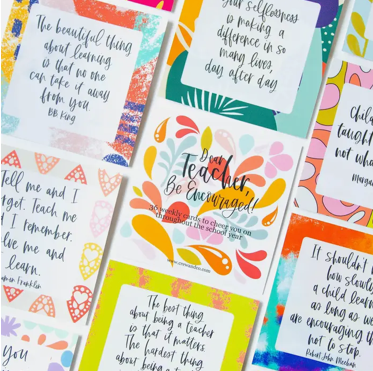 The beautiful thing
about learning
is that no one
can take it away
from you.
BB King
Your selflessness
is making a
difference in so
many lives,
day after day.
taught
not wha
Tell me and I
Teach me
I remember.
me and
learn.
Franklin
Dear
Teacher,
Be Encouraged!
36 weekly cards to cheer you on
throughout the school year
It shouldn't m
how slowly
a child learn
as long as we
are encouraging th
not to stop.
Robert John Meehan
You
The best thing
about being a teacher
is that it matters.
The hardest thing
about being a